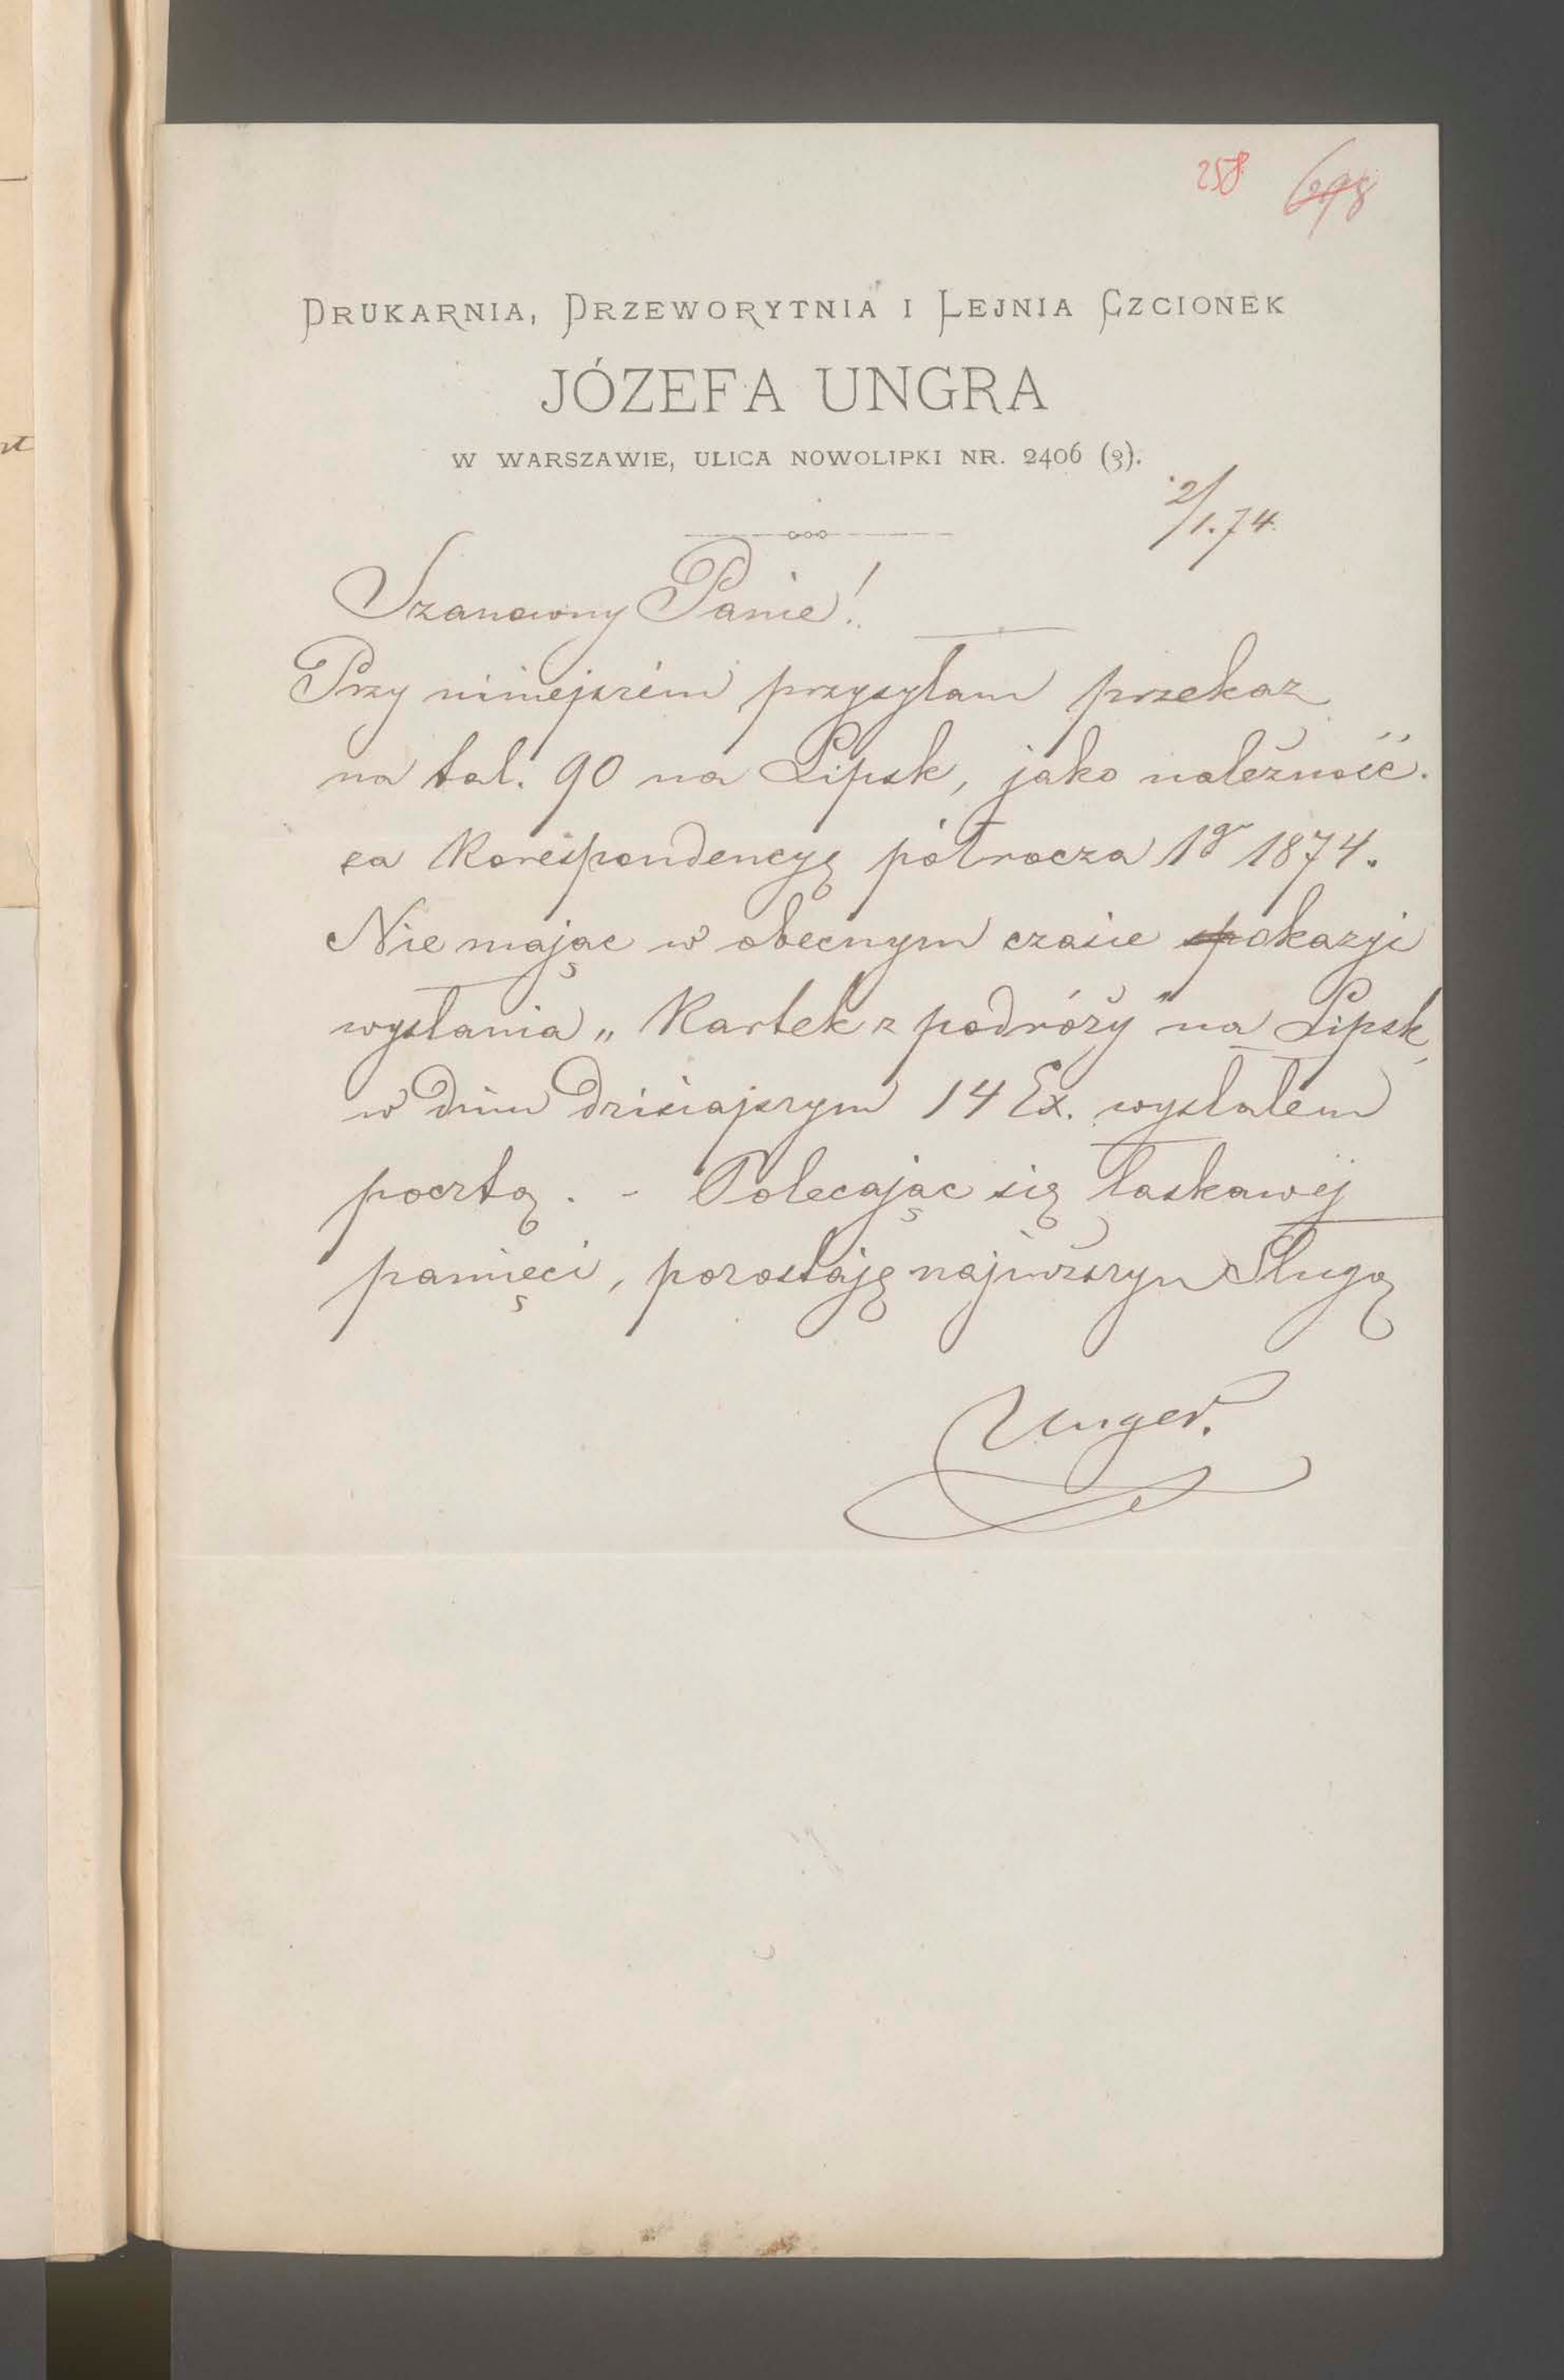 258 698
DRUKARNIA, DRZEWORYTNIA I LEJNIA CZCIONEK
JÓZEFA UNGRA
W WARSZAWIE, ULICA NOWOLIPKI NR. 2406 (3).
2/1.74
Szanowny Panie!
Przy niniejszém przysyłam przekaz
na tal. 90 na Lipsk, jako należność
za Korespondencyę półrocza 1go 1874.
Nie mając w obecnym czasie okazyi
wysłania „Kartek z podróży" na Lipsk,
w dniu dzisiajszym 14 Ex. wysłałem
pocztą. - Polecając się łaskawéj
pamięci, pozostaję najniższym Sługą
Unger.